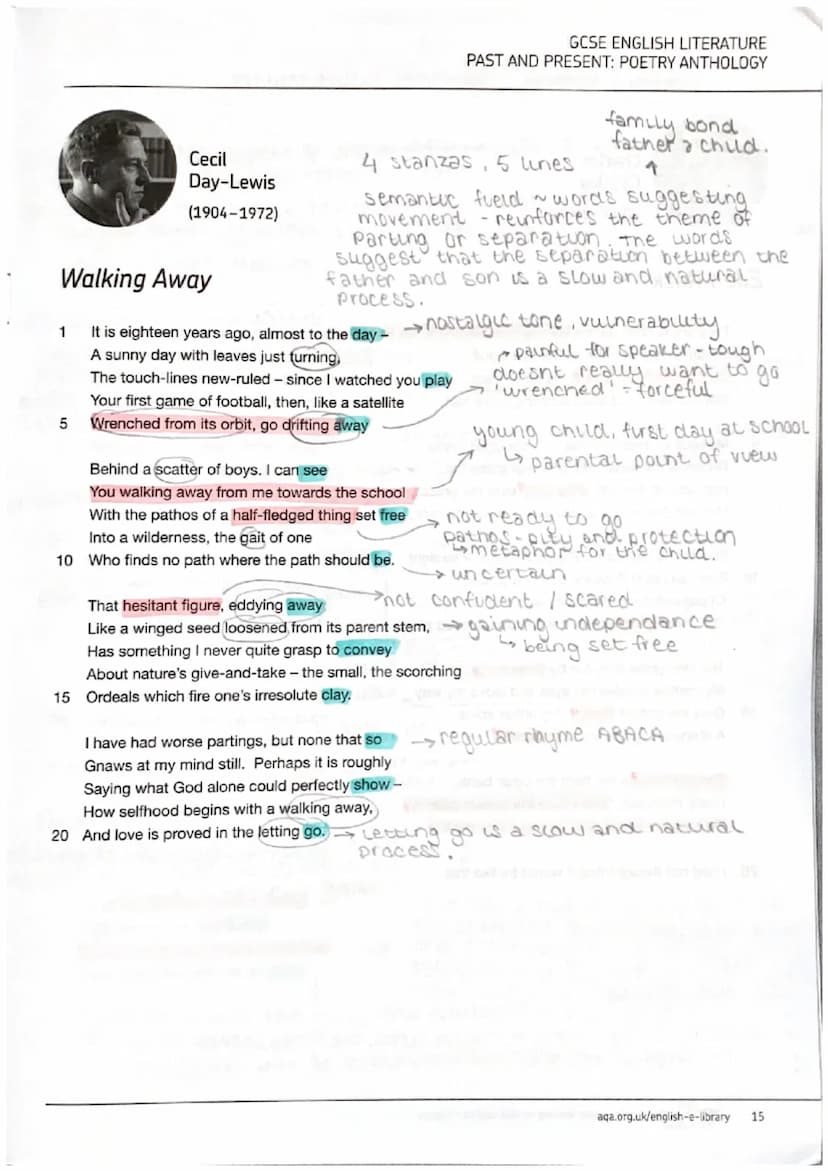 GCSE ENGLISH LITERATURE
PAST AND PRESENT: POETRY ANTHOLOGY
Cecil
Day-Lewis
(1904–1972)
family bond
father & child.
4 stanzas, 5 lines
semantic field ~ words suggesting
movement - reinforces the theme of
parting or separation. The words
suggest that the separation between the
father and son is a slow and natural
process.
Walking Away
1 It is eighteen years ago, almost to the day –
→ nostalgic tone, vulnerability
A sunny day with leaves just turning,
→ painful for speaker - tough
The touch-lines new-ruled – since I watched you play
doesnt really want to go
Your first game of football, then, like a satellite
→ 'wrenched' = forceful
5 Wrenched from its orbit, go drifting away
young child, first day at school
↳ parental point of view
Behind a scatter of boys. I can see
You walking away from me towards the school
With the pathos of a half-fledged thing set free
→ not ready to go
Into a wilderness, the gait of one
pathos - pity and protection
↳ metaphor for the child.
10 Who finds no path where the path should be.
→ uncertain
That hesitant figure, eddying away
→ not confident / scared
Like a winged seed loosened from its parent stem,
→ gaining independance
Has something I never quite grasp to convey
↳ being set free
About nature's give-and-take – the small, the scorching
15 Ordeals which fire one's irresolute clay.
I have had worse partings, but none that so
→ regular rhyme ABACA
Gnaws at my mind still. Perhaps it is roughly
Saying what God alone could perfectly show –
How selfhood begins with a walking away,
20 And love is proved in the letting go.
→ Letting go is a slow and natural
process.
aqa.org.uk/english-e-library 15